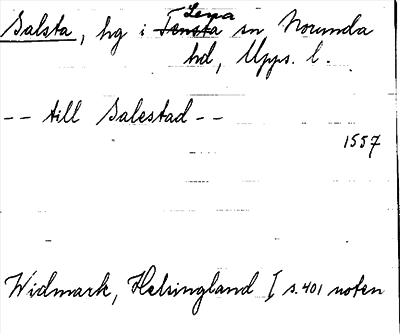 Salsta, hg i Tensta Lena sn, Norunda
hd, Upps. l.
-- till Salestad --
1557
Widmark, Helsingland I s. 401 noten